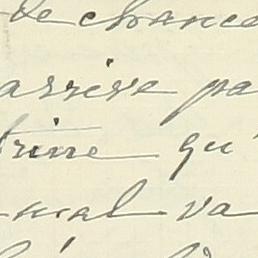 de chance
arrive pa
trine qu'
mal va